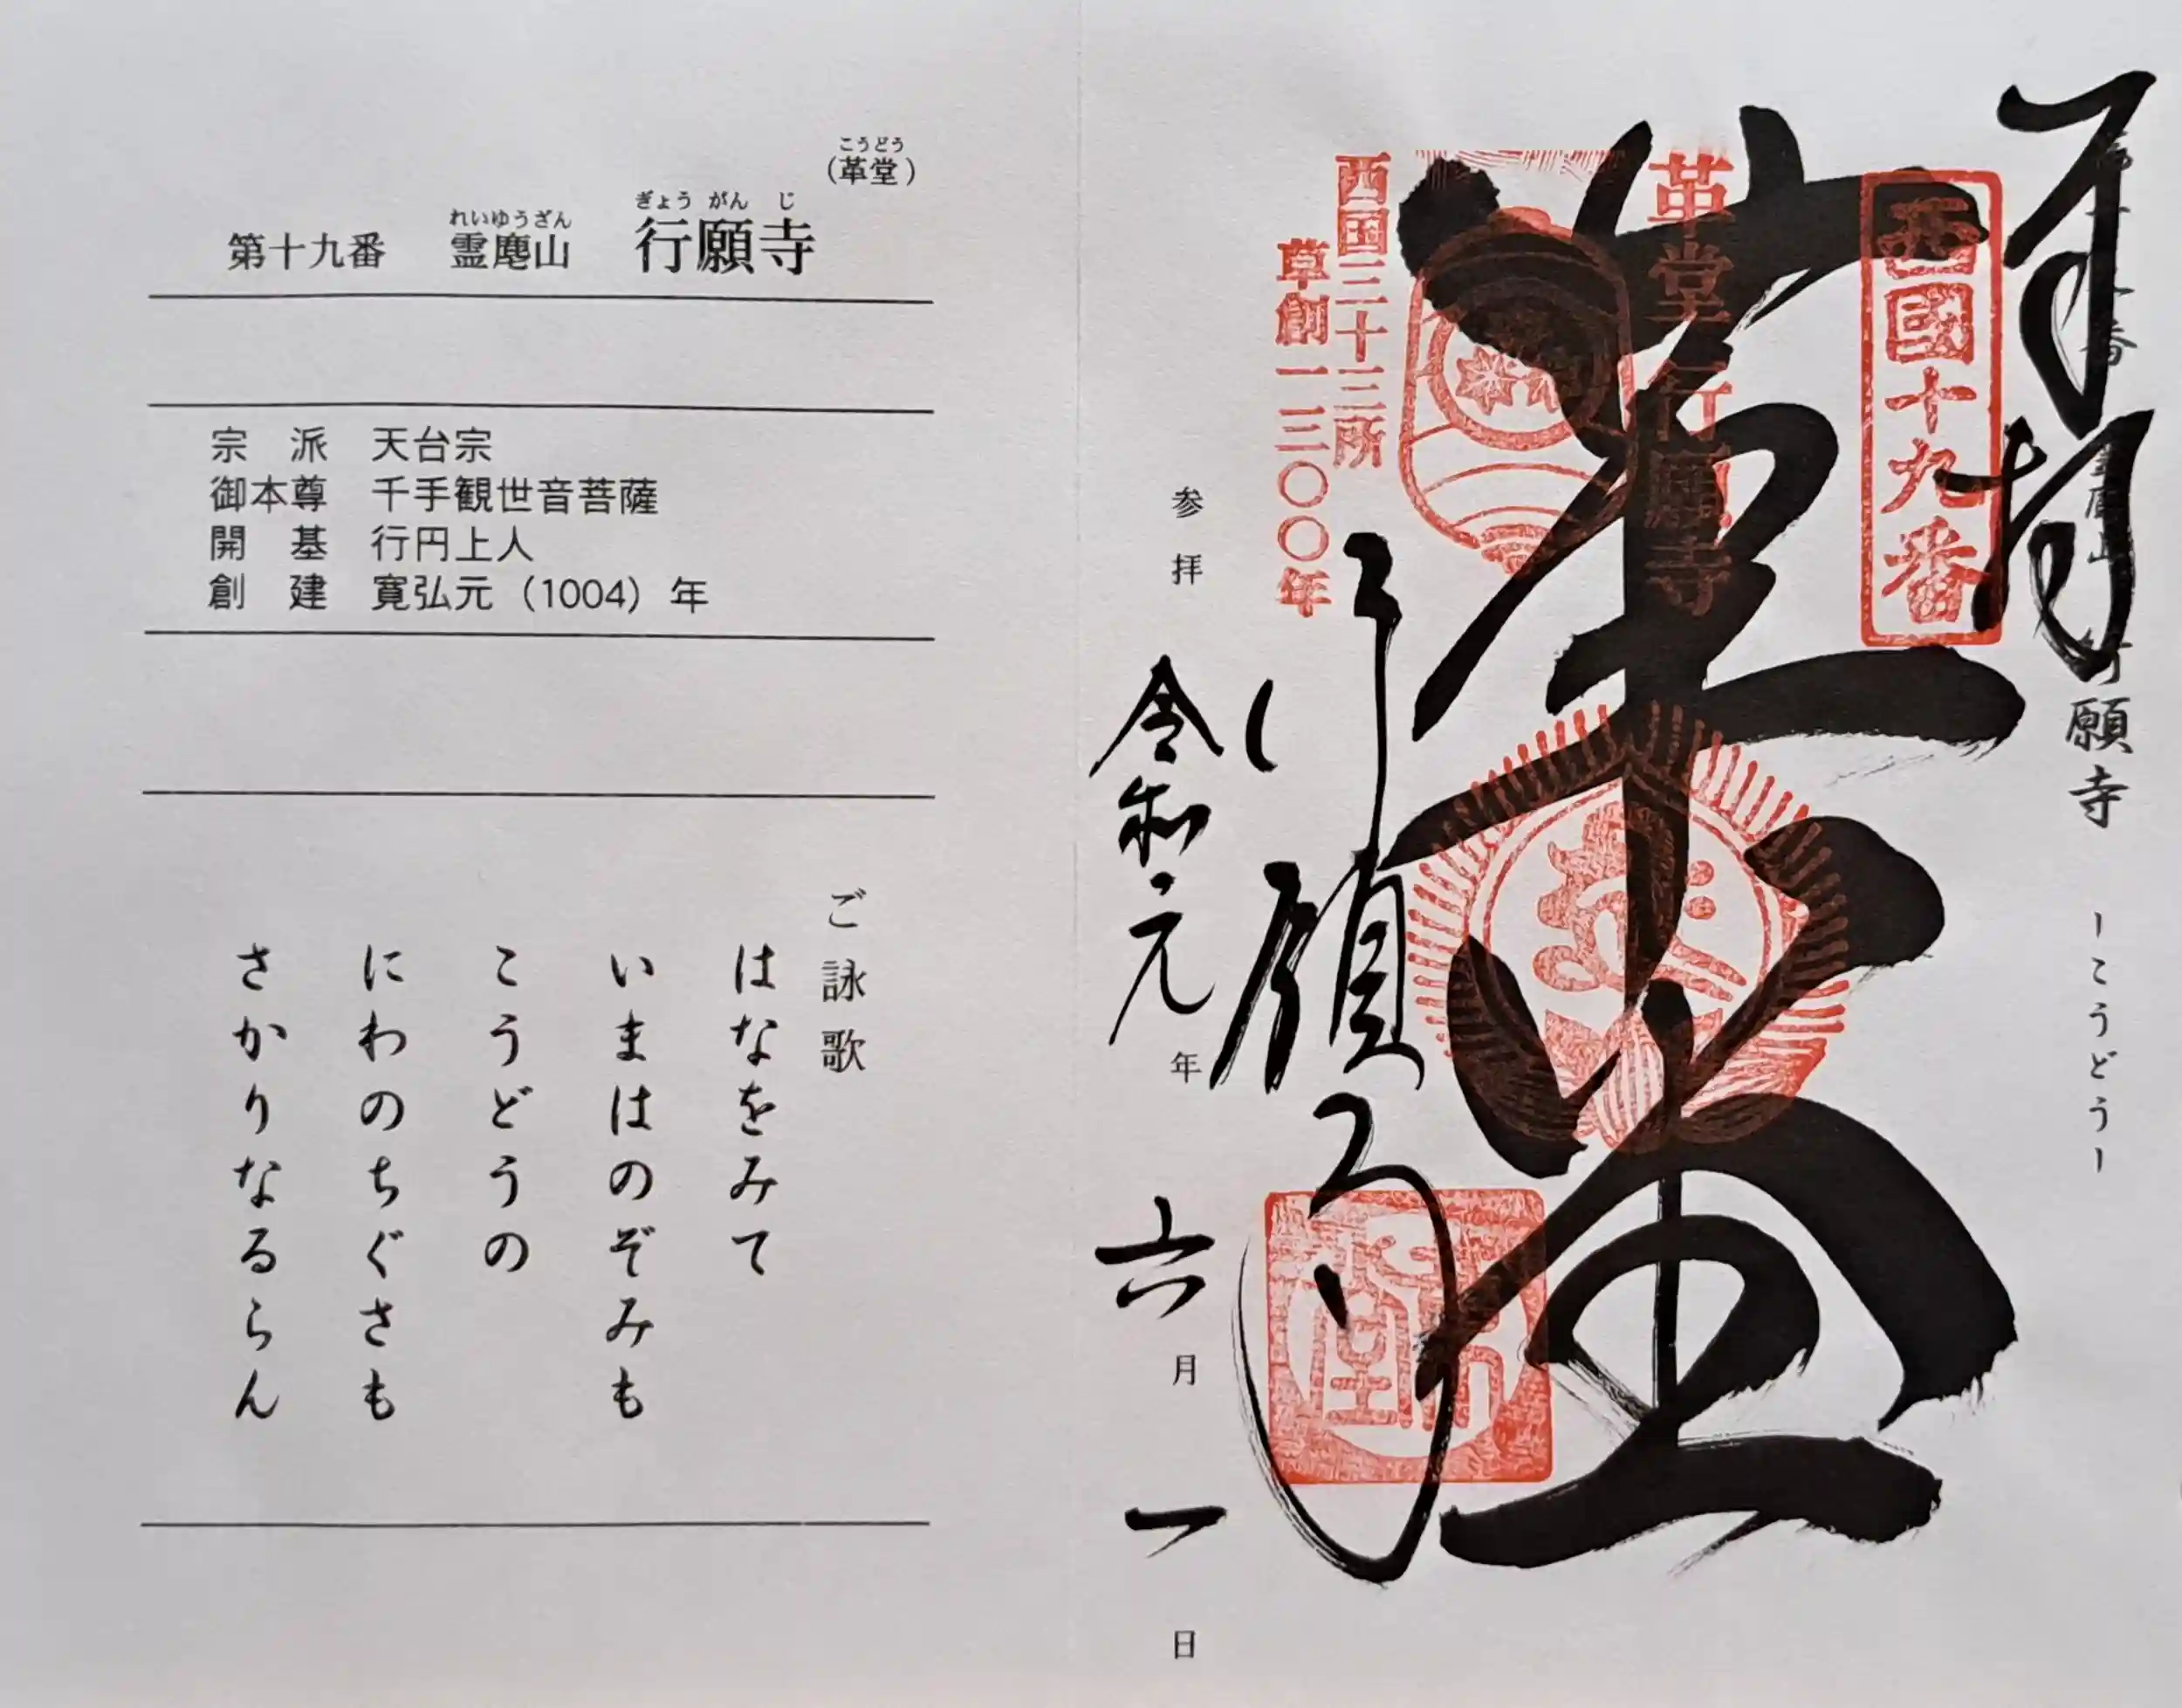 (革堂)
こうどう
第十九番 霊麀山 行願寺
れいゆうざん ぎょうがんじ
宗派 天台宗
御本尊 千手観世音菩薩
開基 行円上人
創建 寛弘元(1004)年
ご詠歌
はなをみて
いまはのぞみも
こうどうの
にわのちぐさも
さかりなるらん
奉拝
願寺 ーこうどうー
西國十九番
革堂行願寺
革堂
西国三十三所
草創一三〇〇年
行願寺
参拝 令和元年 六月 一日